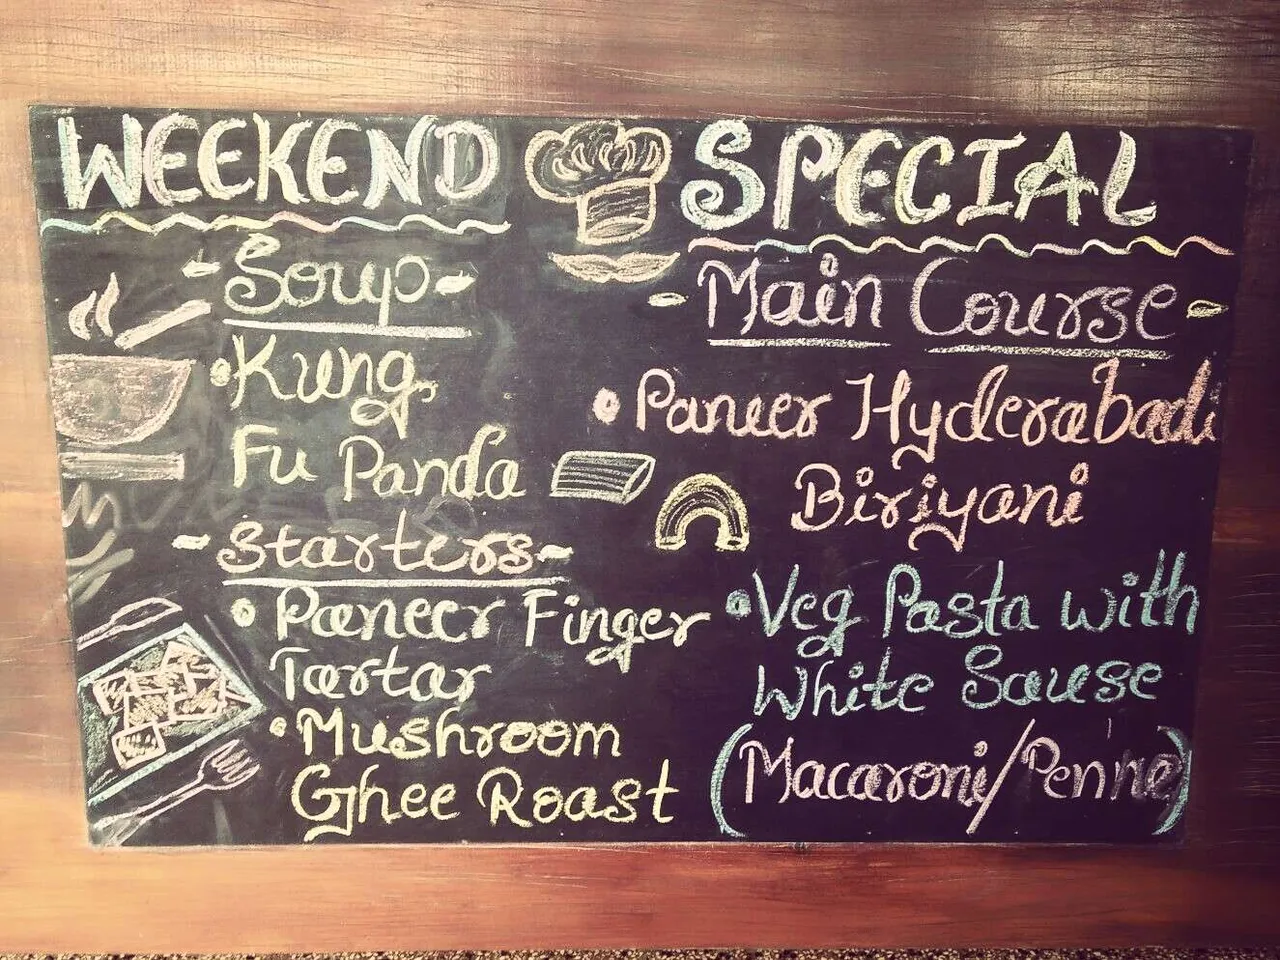 WEEKEND SPECIAL
-Soup-
•Kung
Fu Panda
-Starters-
•Paneer Finger
Tartar
•Mushroom
Ghee Roast
-Main Course-
•Paneer Hyderabadi
Biriyani
•Veg Pasta with
White Sause
(Macaroni/Penne)